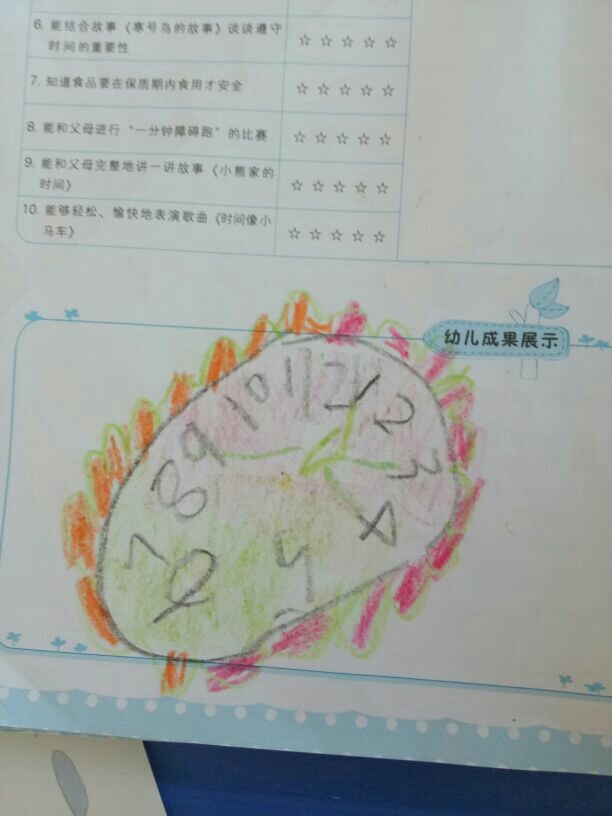 6. 能结合故事《寒号鸟的故事》谈谈遵守
时间的重要性
☆ ☆ ☆ ☆ ☆
7. 知道食品要在保质期内食用才安全
☆ ☆ ☆ ☆ ☆
8. 能和父母进行“一分钟障碍跑”的比赛
☆ ☆ ☆ ☆ ☆
9. 能和父母完整地讲一讲故事《小熊家的
时间》
☆ ☆ ☆ ☆ ☆
10. 能够轻松、愉快地表演歌曲《时间像小
马车》
☆ ☆ ☆ ☆ ☆
幼儿成果展示
10 11 12 1 2
9 3
8 4
7